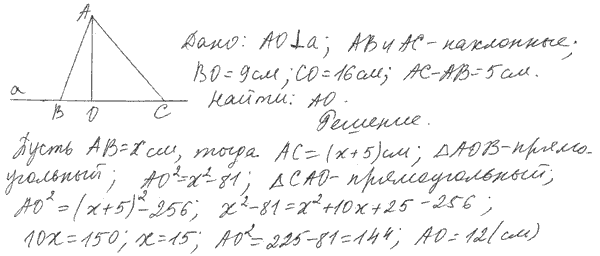 A
a
B O C
Дано: AO⊥a; AB и AC - наклонные;
BO=9см; CO=16см; AC-AB=5см.
Найти: AO.
Решение.
Пусть AB=x см, тогда AC=(x+5)см; △AOB-прямо-
угольный; AO²=x²-81; △CAO-прямоугольный;
AO²=(x+5)²-256; x²-81=x²+10x+25-256;
10x=150; x=15; AO²=225-81=144; AO=12(см)